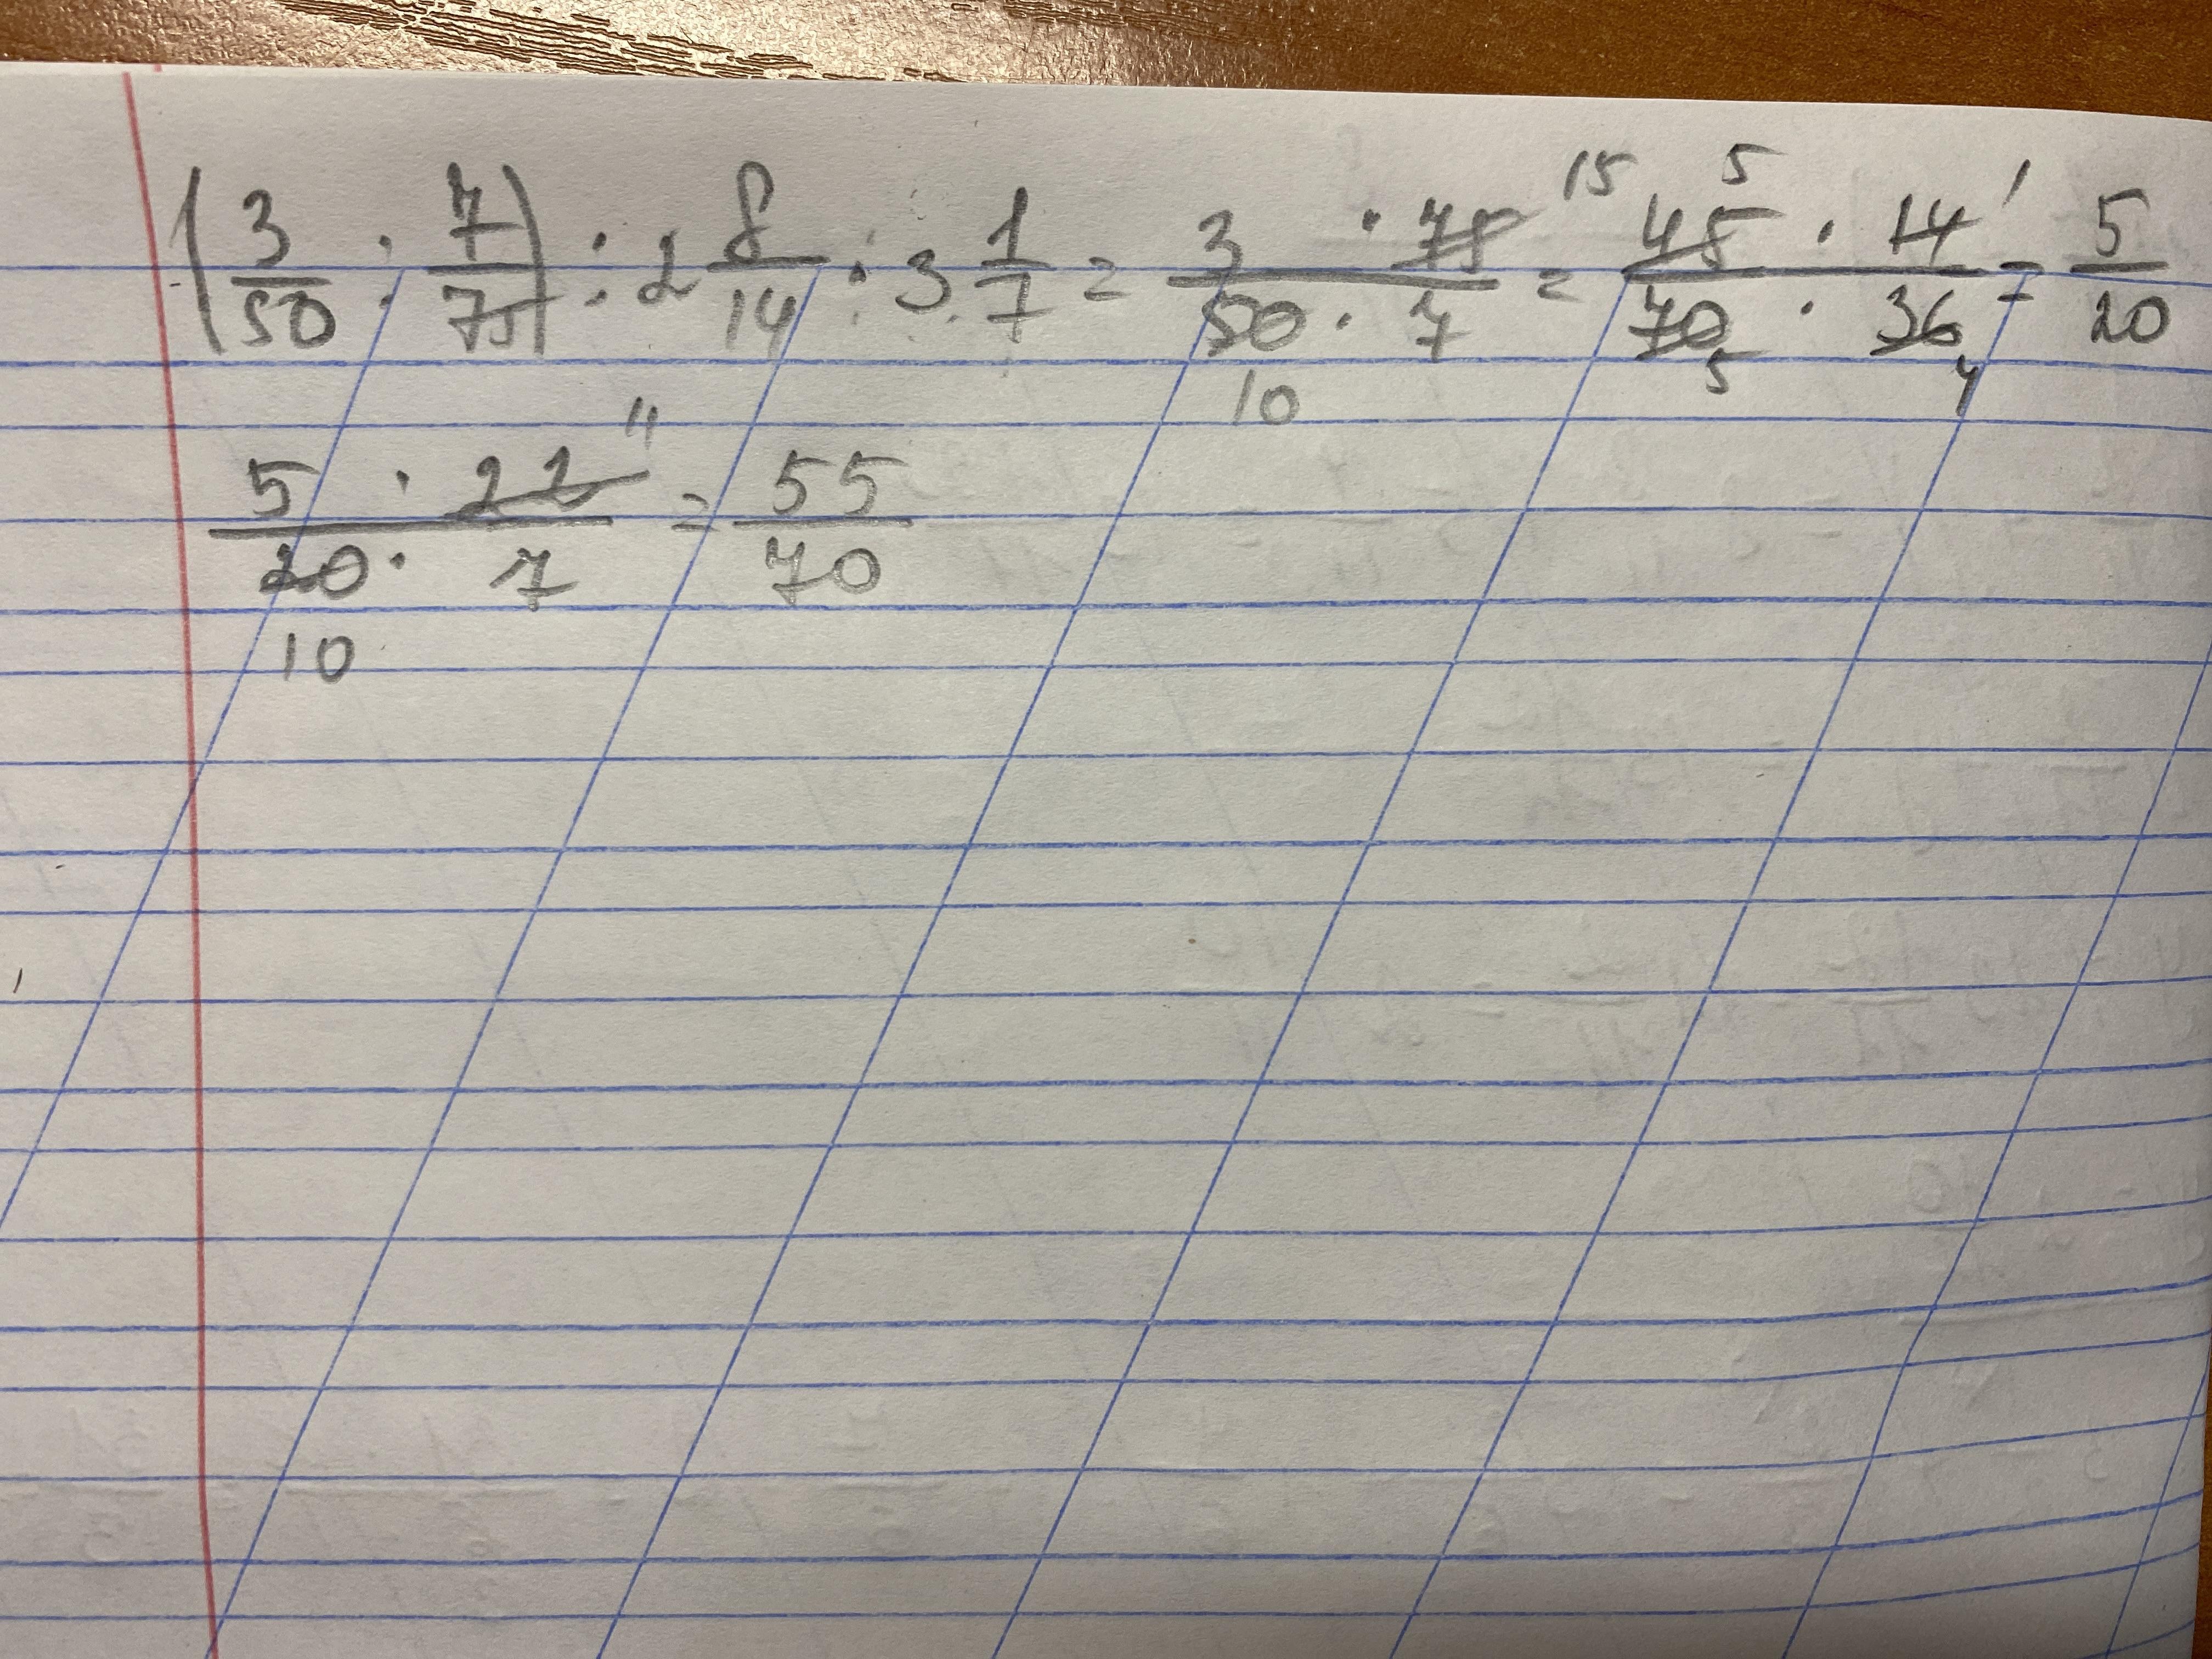 (3/50 : 7/75) : 2 8/14 · 3 1/7 = 3 · 75 15/50 10 · 7 = 45 5 · 14 1/70 5 · 36 4 = 5/20
5 · 22 11/20 10 · 7 = 55/70